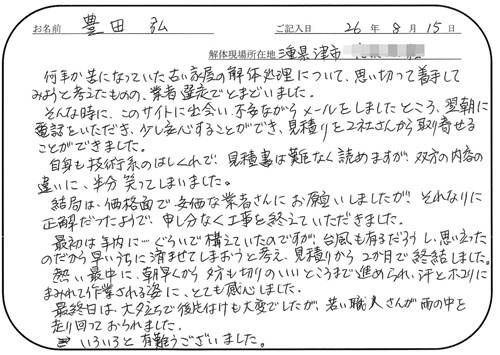 お名前 豊田 弘 ご記入日 26年 8月 15日
解体現場所在地 三重県津市
何年か苦になっていた古い家屋の解体処理について、思い切って着手して
みようと考えたものの、業者選定でとまどいました。
そんな時に、このサイトに出会い、不安ながらメールをしましたところ、翌朝に
電話をいただき、少し安心することができ、見積りを2社さんから取寄せる
ことができました。
自身も技術系のはしくれで、見積書は難なく読めますが、双方の内容の
違いに、半分笑ってしまいました。
結局は、価格面で安価な業者さんにお願いしましたが、それなりに
正解だったようで、申し分なく工事を終えていただきました。
最初は年内に…ぐらいで構えていたのですが、台風も有るだろうし、思い立った
のだから早いうちに済ませてしまおうと考え、見積りから2ヵ月で終結しました。
熱い最中に、朝早くから夕方も切りのいいところまで進められ、汗とホコリに
まみれて作業される姿に、とても感心しました。
最終日は、大夕立ちで後片付けも大変でしたが、若い職人さんが雨の中を
走り回っておられました。
いろいろと有難うございました。